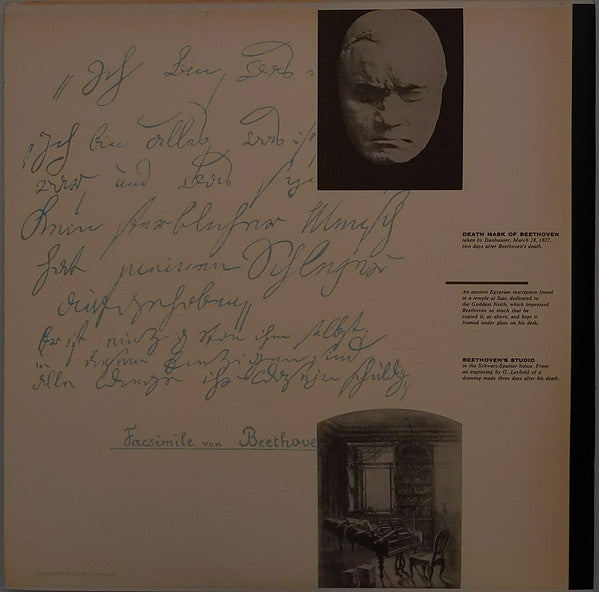 „Ich bin, was
„Ich bin alles, was ist
war, und was
Kein sterblicher Mensch
hat meinen Schleyer
aufgehoben„
Er ist einzig v. ihm selbst,
u. diesem Einzigen sind
alle Dinge ihr Daseyn schuldig„
Facsimile von Beethove
DEATH MASK OF BEETHOVEN
taken by Danhauser, March 28, 1827,
two days after Beethoven's death.
An ancient Egyptian inscription found
in a temple at Sais, dedicated to
the Goddess Neith, which impressed
Beethoven so much that he
copied it, as above, and kept it
framed under glass on his desk.
BEETHOVEN'S STUDIO
in the Schwarz-Spanier house. From
an engraving by G. Leybold of a
drawing made three days after his death.